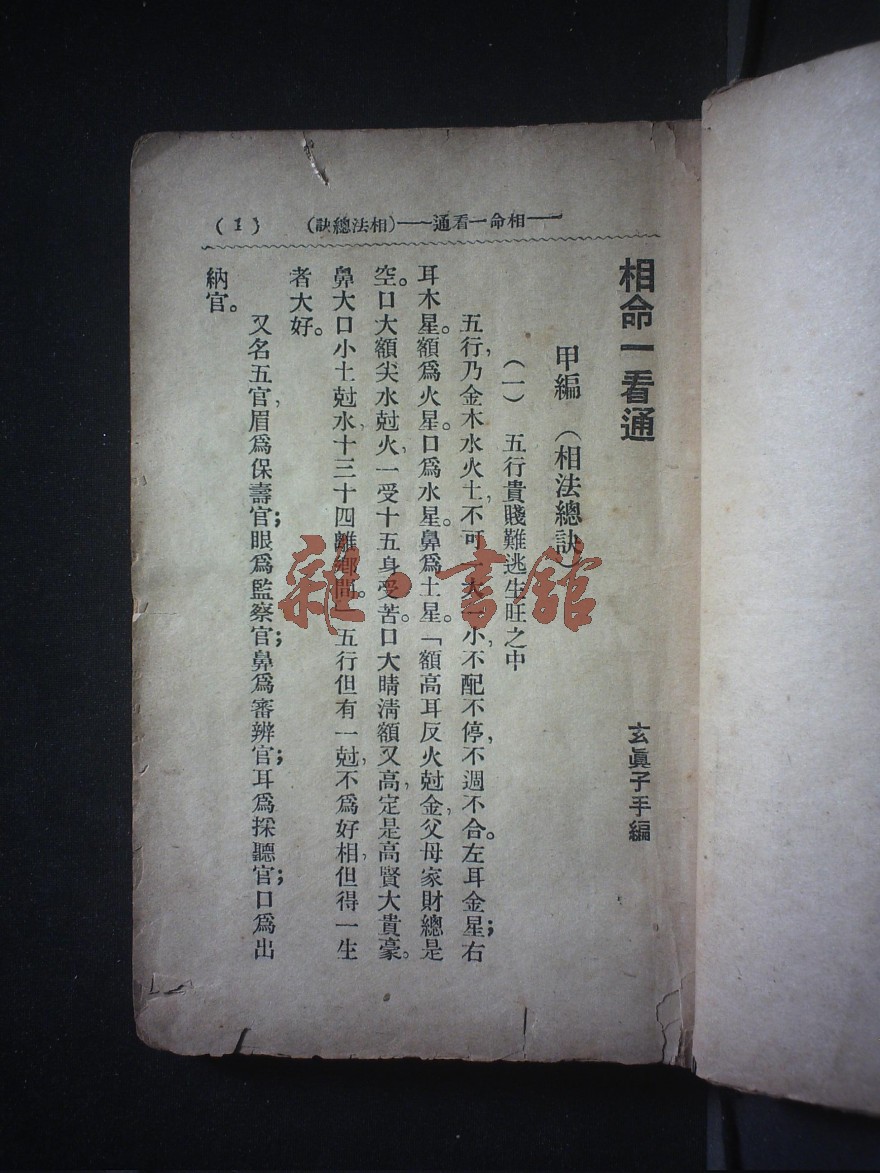 ——相命一看通——(相法總訣) (1)
相命一看通
玄眞子手編
甲編 (相法總訣)
(一) 五行貴賤難逃生旺之中
五行,乃金木水火土,不可一大一小,不配不停,不週不合。左耳金星;右
耳木星。額爲火星。口爲水星。鼻爲土星。「額高耳反火尅金,父母家財總是
空。口大額尖水尅火,一受十五身受苦。口大睛淸額又高,定是高賢大貴豪。
鼻大口小土尅水,十三十四離鄉問。」五行但有一尅,不爲好相,但得一生
者大好。
又名五官,眉爲保壽官;眼爲監察官;鼻爲審辨官;耳爲採聽官;口爲出
納官。
雜·書館